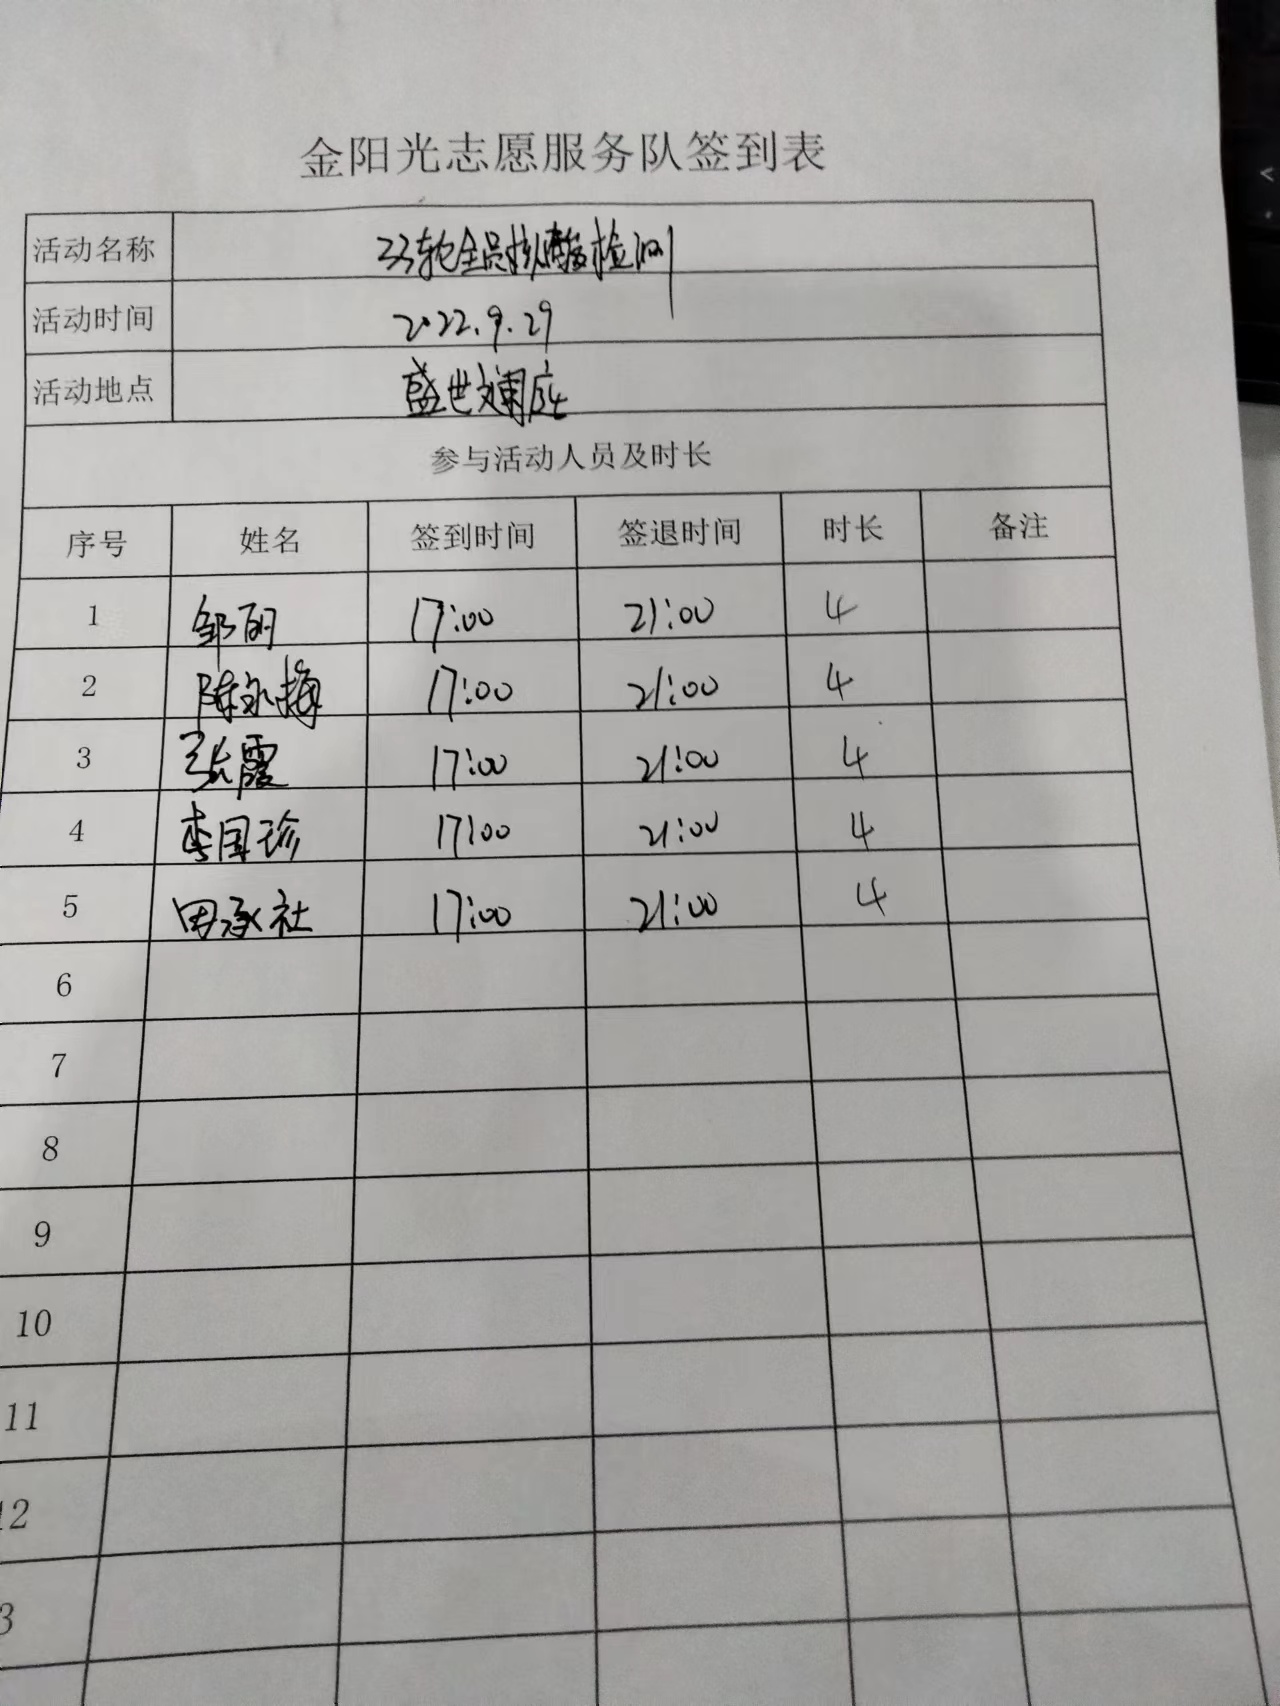 金阳光志愿服务队签到表
活动名称 33轮全员核酸检测
活动时间 2022.9.29
活动地点 盛世澜庭
参与活动人员及时长
序号 姓名 签到时间 签退时间 时长 备注
1 邹丽 17:00 21:00 4
2 陈永梅 17:00 21:00 4
3 张霞 17:00 21:00 4
4 李国珍 17:00 21:00 4
5 田承社 17:00 21:00 4
6
7
8
9
10
11
12
3